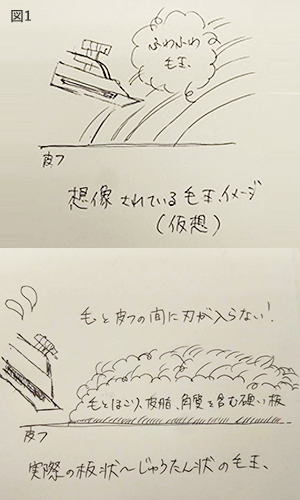 図1
ふわふわな
毛玉
皮フ
想像されている毛玉イメージ
(仮想)
毛と皮フの間に刃が入らない!
毛とほこり、皮脂、角質を含む硬い板
皮フ
実際の板状〜じゅうたん状の毛玉